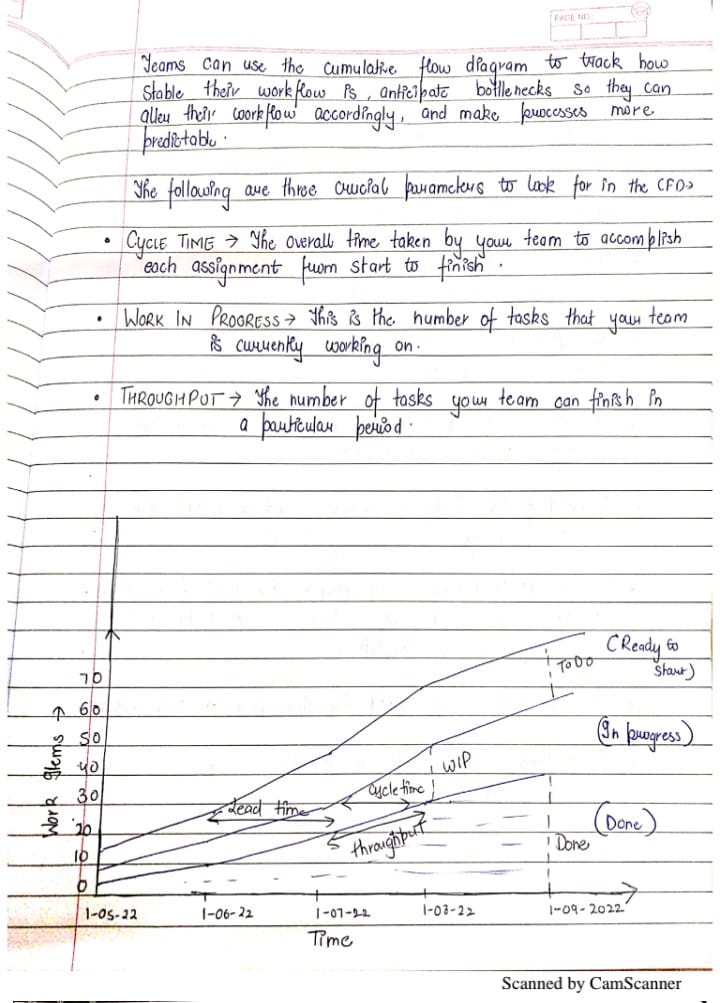 PAGE NO.
Teams can use the cumulative flow diagram to track how
stable their workflow is, anticipate bottlenecks so they can
alter their workflow accordingly, and make processes more
predictable.
The following are three crucial parameters to look for in the CFD→
• CYCLE TIME → The overall time taken by your team to accomplish
each assignment from start to finish.
• WORK IN PROGRESS → This is the number of tasks that your team
is currently working on.
• THROUGHPUT → The number of tasks your team can finish in
a particular period.
(Ready to
Start)
To Do
70
60
50
40
30
20
10
0
Work Items →
(In progress)
WIP
Cycle time
Lead time
throughput
(Done)
Done
1-05-22
1-06-22
1-07-22
1-08-22
1-09-2022
Time
Scanned by CamScanner